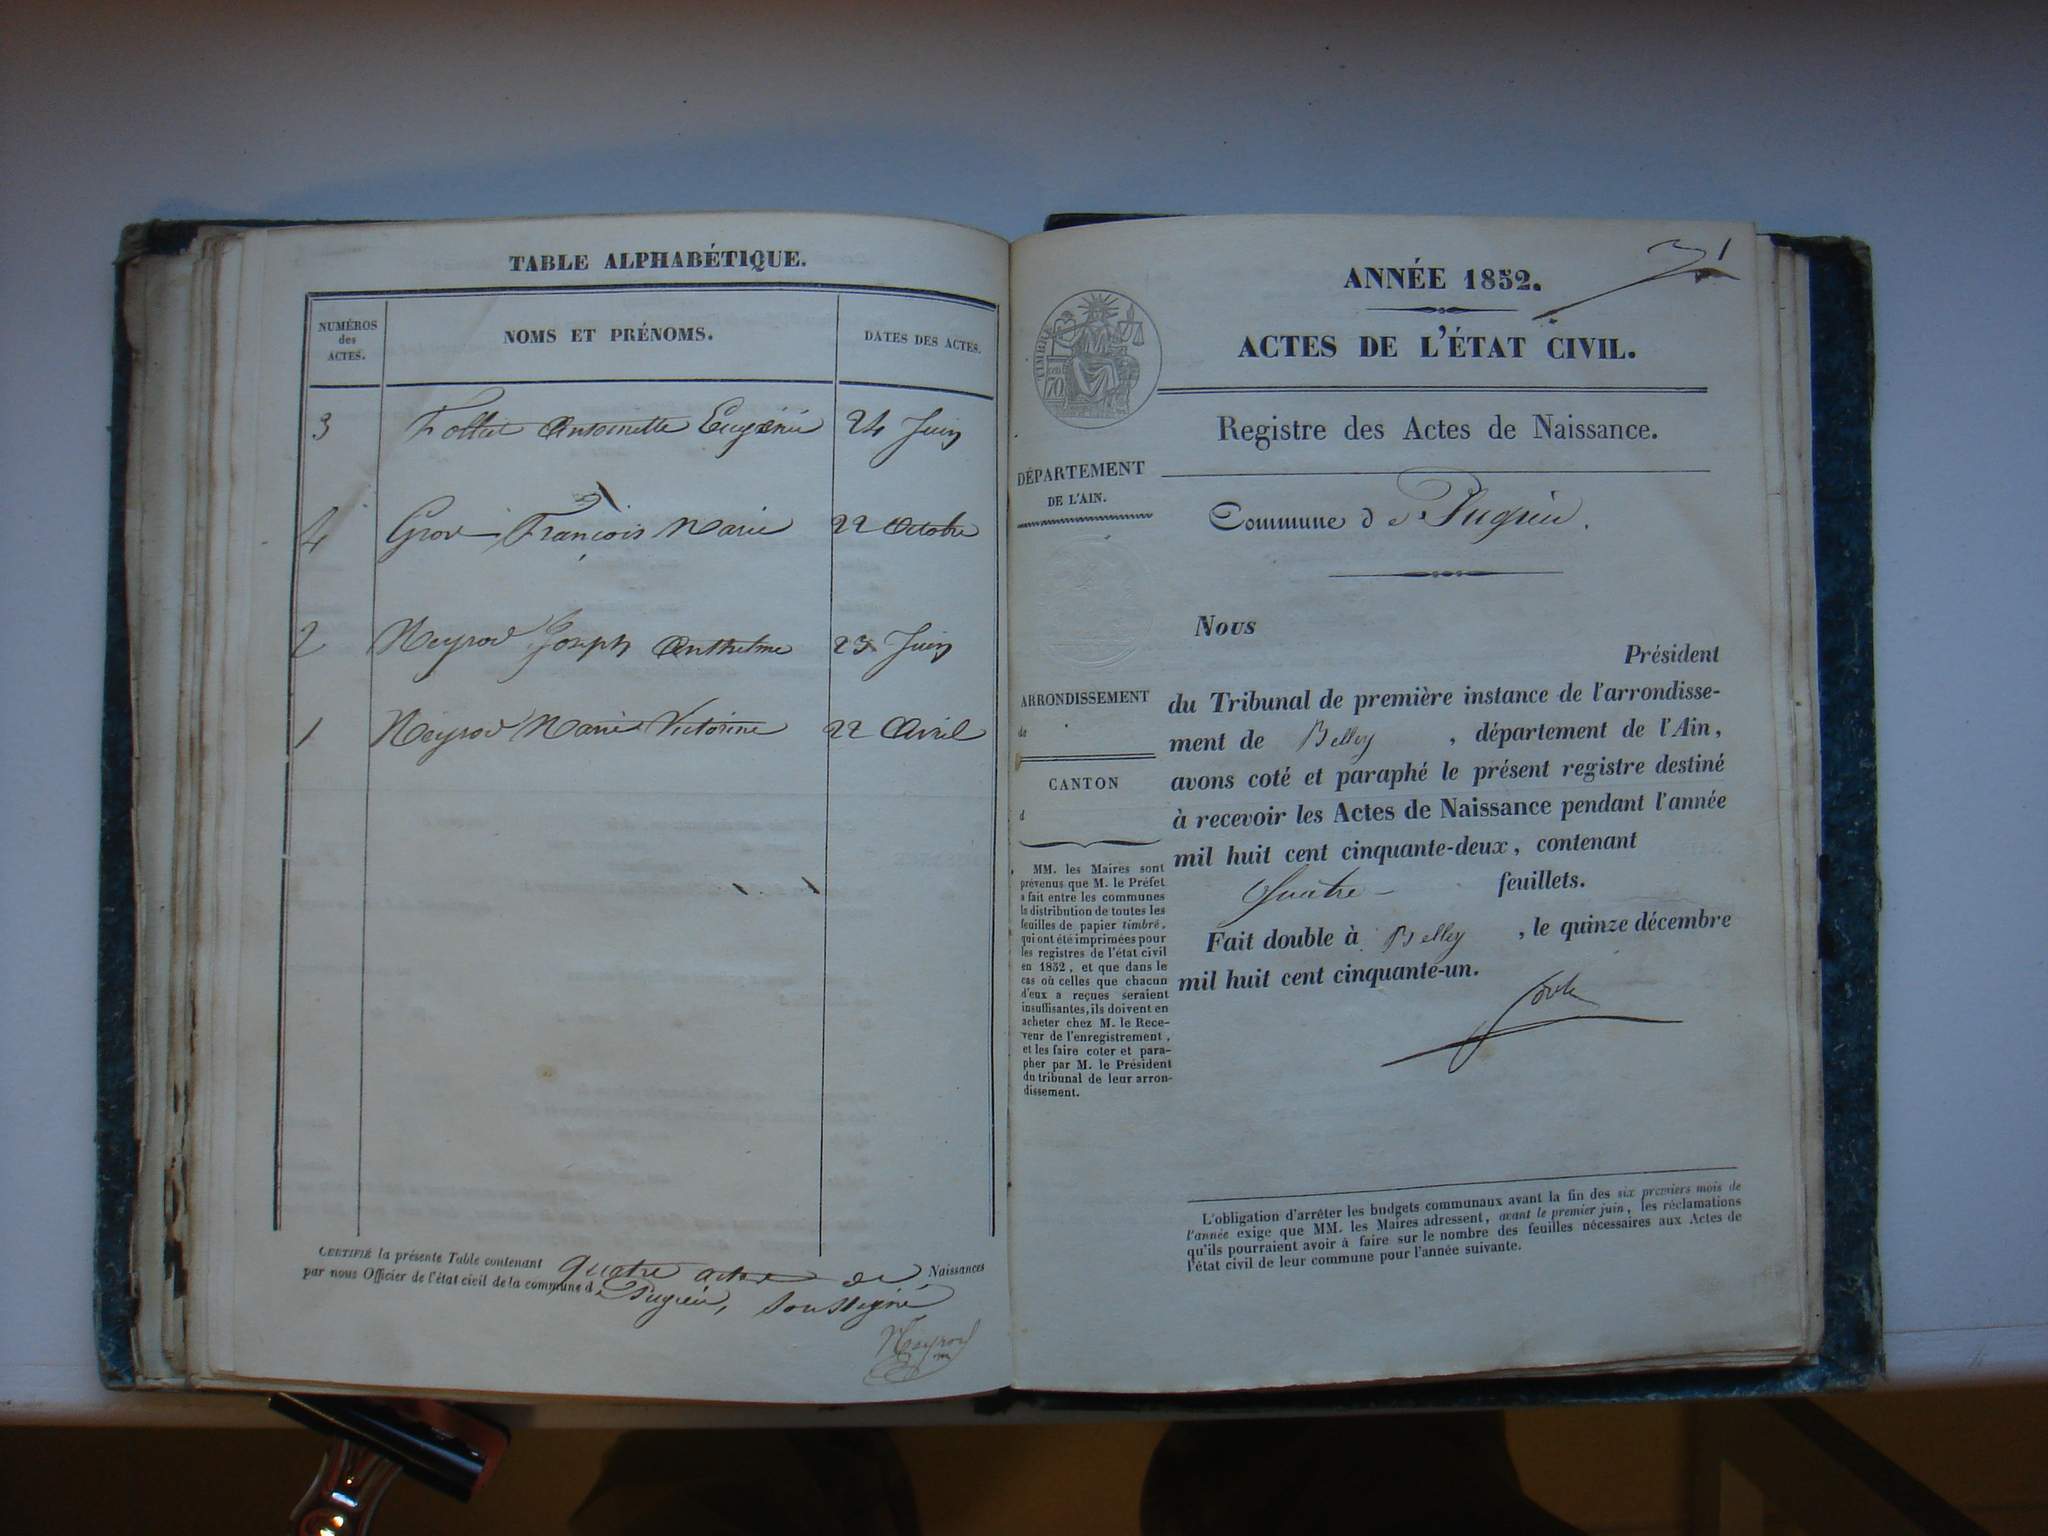 TABLE ALPHABÉTIQUE.
NUMÉROS
des
ACTES.
NOMS ET PRÉNOMS.
DATES DES ACTES.
3 Antoinette Eugénie 24 Juin
4 Grod François Marie 22 Octobre
2 Neyrod Joseph Anthelme 23 Juin
1 Neyrod Marie Victorine 22 Avril
CERTIFIÉ la présente Table contenant quatre actes de Naissances
par nous Officier de l'état civil de la commune de Pugieu, soussigné
Neyrod
1
ANNÉE 1852.
ACTES DE L'ÉTAT CIVIL.
TIMBRE
70
Registre des Actes de Naissance.
DÉPARTEMENT
DE L'AIN.
Commune de Pugieu.
ARRONDISSEMENT
de
CANTON
d
MM. les Maires sont
prévenus que M. le Préfet
a fait entre les communes
la distribution de toutes les
feuilles de papier timbré,
qui ont été imprimées pour
les registres de l'état civil
en 1852, et que dans le
cas où celles que chacun
d'eux a reçues seraient
insuffisantes, ils doivent en
acheter chez M. le Rece-
veur de l'enregistrement,
et les faire coter et para-
pher par M. le Président
du tribunal de leur arron-
dissement.
Nous
Président
du Tribunal de première instance de l'arrondisse-
ment de Belley , département de l'Ain,
avons coté et paraphé le présent registre destiné
à recevoir les Actes de Naissance pendant l'année
mil huit cent cinquante-deux, contenant
Quatre - feuillets.
Fait double à Belley , le quinze décembre
mil huit cent cinquante-un.
L'obligation d'arrêter les budgets communaux avant la fin des six premiers mois de
l'année exige que MM. les Maires adressent, avant le premier juin, les réclamations
qu'ils pourraient avoir à faire sur le nombre des feuilles nécessaires aux Actes de
l'état civil de leur commune pour l'année suivante.